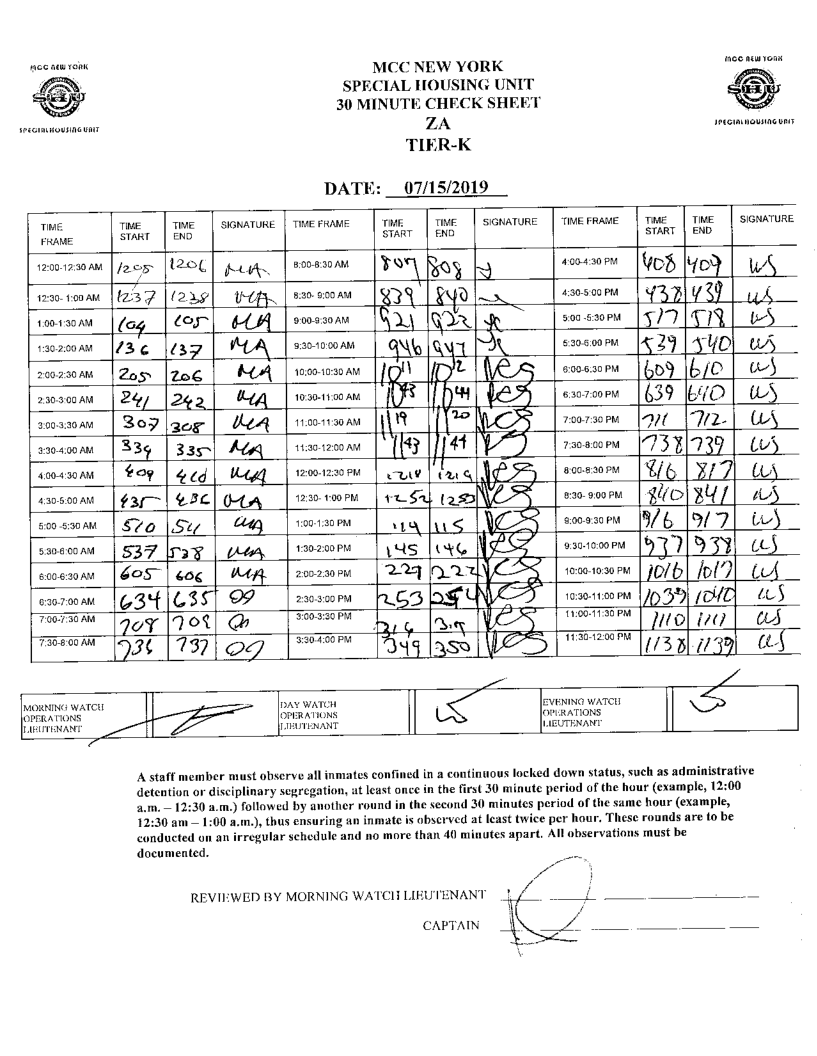 MCC NEW YORK
SPECIAL HOUSING UNIT
MCC NEW YORK
SPECIAL HOUSING UNIT
30 MINUTE CHECK SHEET
ZA
TIER-K
MCC NEW YORK
SHU
SPECIAL HOUSING UNIT
DATE: 07/15/2019
TIME FRAME TIME START TIME END SIGNATURE TIME FRAME TIME START TIME END SIGNATURE TIME FRAME TIME START TIME END SIGNATURE
12:00-12:30 AM 1205 1206 MA 8:00-8:30 AM 807 808 4:00-4:30 PM 408 409 WS
12:30- 1:00 AM 1237 1238 MA 8:30- 9:00 AM 839 840 4:30-5:00 PM 438 439 WS
1:00-1:30 AM 104 105 MA 9:00-9:30 AM 921 922 5:00 -5:30 PM 517 518 WS
1:30-2:00 AM 136 137 MA 9:30-10:00 AM 946 947 5:30-6:00 PM 539 540 WS
2:00-2:30 AM 205 206 MA 10:00-10:30 AM 1011 1012 6:00-6:30 PM 609 610 WS
2:30-3:00 AM 241 242 MA 10:30-11:00 AM 1043 1044 6:30-7:00 PM 639 640 WS
3:00-3:30 AM 307 308 MA 11:00-11:30 AM 1119 1120 7:00-7:30 PM 711 712 WS
3:30-4:00 AM 334 335 MA 11:30-12:00 AM 1143 1144 7:30-8:00 PM 738 739 WS
4:00-4:30 AM 409 410 MA 12:00-12:30 PM 1218 1219 8:00-8:30 PM 816 817 WS
4:30-5:00 AM 435 436 MA 12:30- 1:00 PM 1252 1253 8:30- 9:00 PM 840 841 WS
5:00 -5:30 AM 510 511 MA 1:00-1:30 PM 114 115 9:00-9:30 PM 916 917 WS
5:30-6:00 AM 537 538 MA 1:30-2:00 PM 145 146 9:30-10:00 PM 937 938 WS
6:00-6:30 AM 605 606 MA 2:00-2:30 PM 10:00-10:30 PM 1016 1017 WS
6:30-7:00 AM 634 635 2:30-3:00 PM 253 254 10:30-11:00 PM 1039 1040 WS
7:00-7:30 AM 708 709 3:00-3:30 PM 316 317 11:00-11:30 PM 1110 1111 WS
7:30-8:00 AM 736 737 3:30-4:00 PM 349 350 11:30-12:00 PM 1138 1139 WS
MORNING WATCH OPERATIONS LIEUTENANT DAY WATCH OPERATIONS LIEUTENANT EVENING WATCH OPERATIONS LIEUTENANT
A staff member must observe all inmates confined in a continuous locked down status, such as administrative
detention or disciplinary segregation, at least once in the first 30 minute period of the hour (example, 12:00
a.m. – 12:30 a.m.) followed by another round in the second 30 minutes period of the same hour (example,
12:30 am – 1:00 a.m.), thus ensuring an inmate is observed at least twice per hour. These rounds are to be
conducted on an irregular schedule and no more than 40 minutes apart. All observations must be
documented.
REVIEWED BY MORNING WATCH LIEUTENANT
CAPTAIN